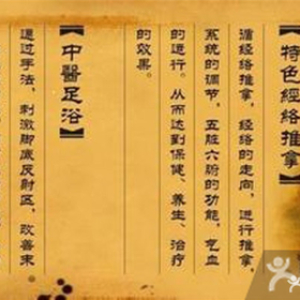 【特色經絡推拿】
循经络推拿，经络的走向，进行推拿，
系统的调节，五脏六腑的功能，气血
的运行。从而达到保健、养生、治疗
的效果。
【中醫足浴】
通过手法，刺激脚底反射区，改善末